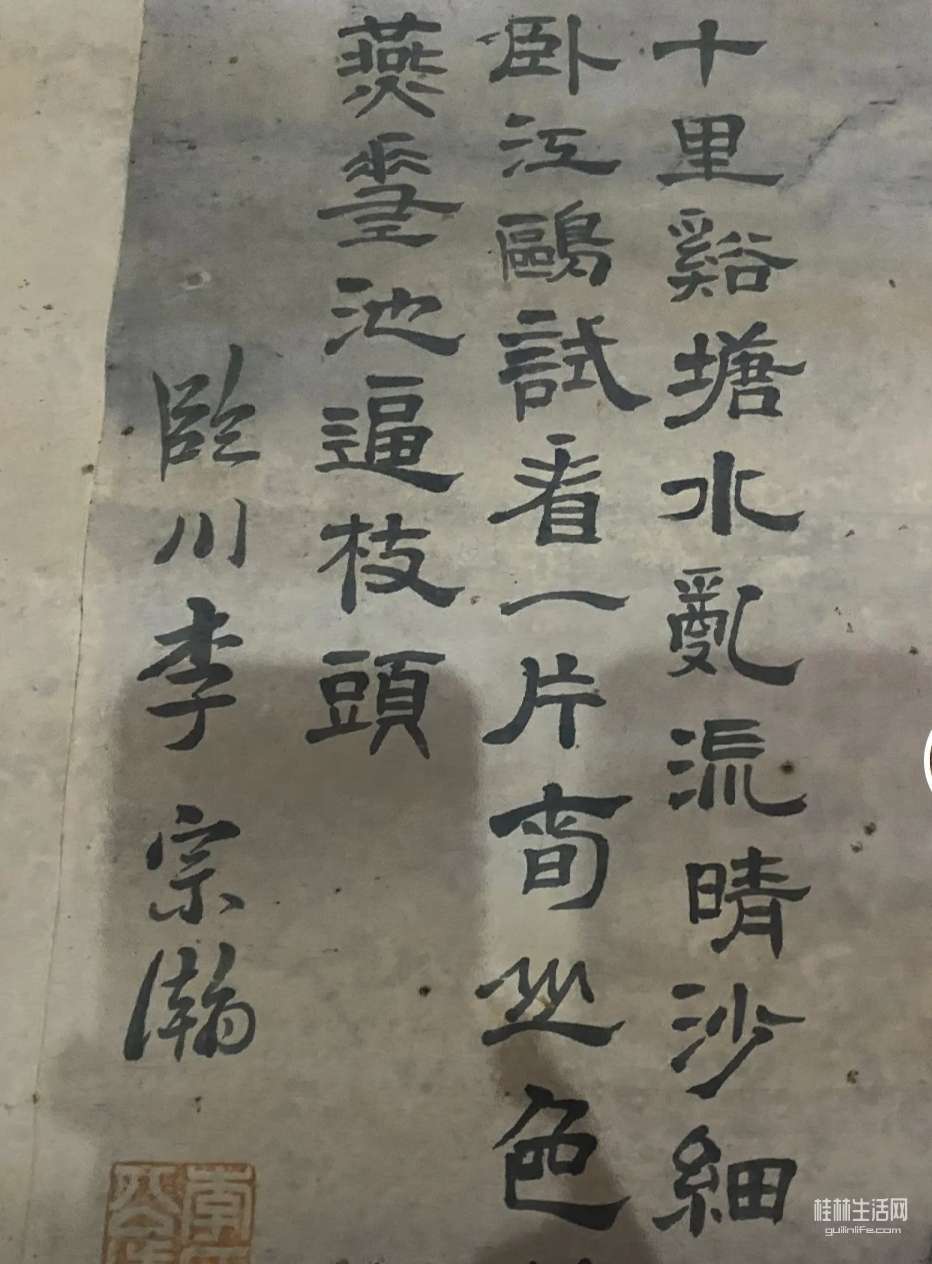 十里谿塘水亂流晴沙細
卧江鷗試看一片春色
燕池逼枝頭
臨川李宗瀚
桂林生活网
guilinlife.com